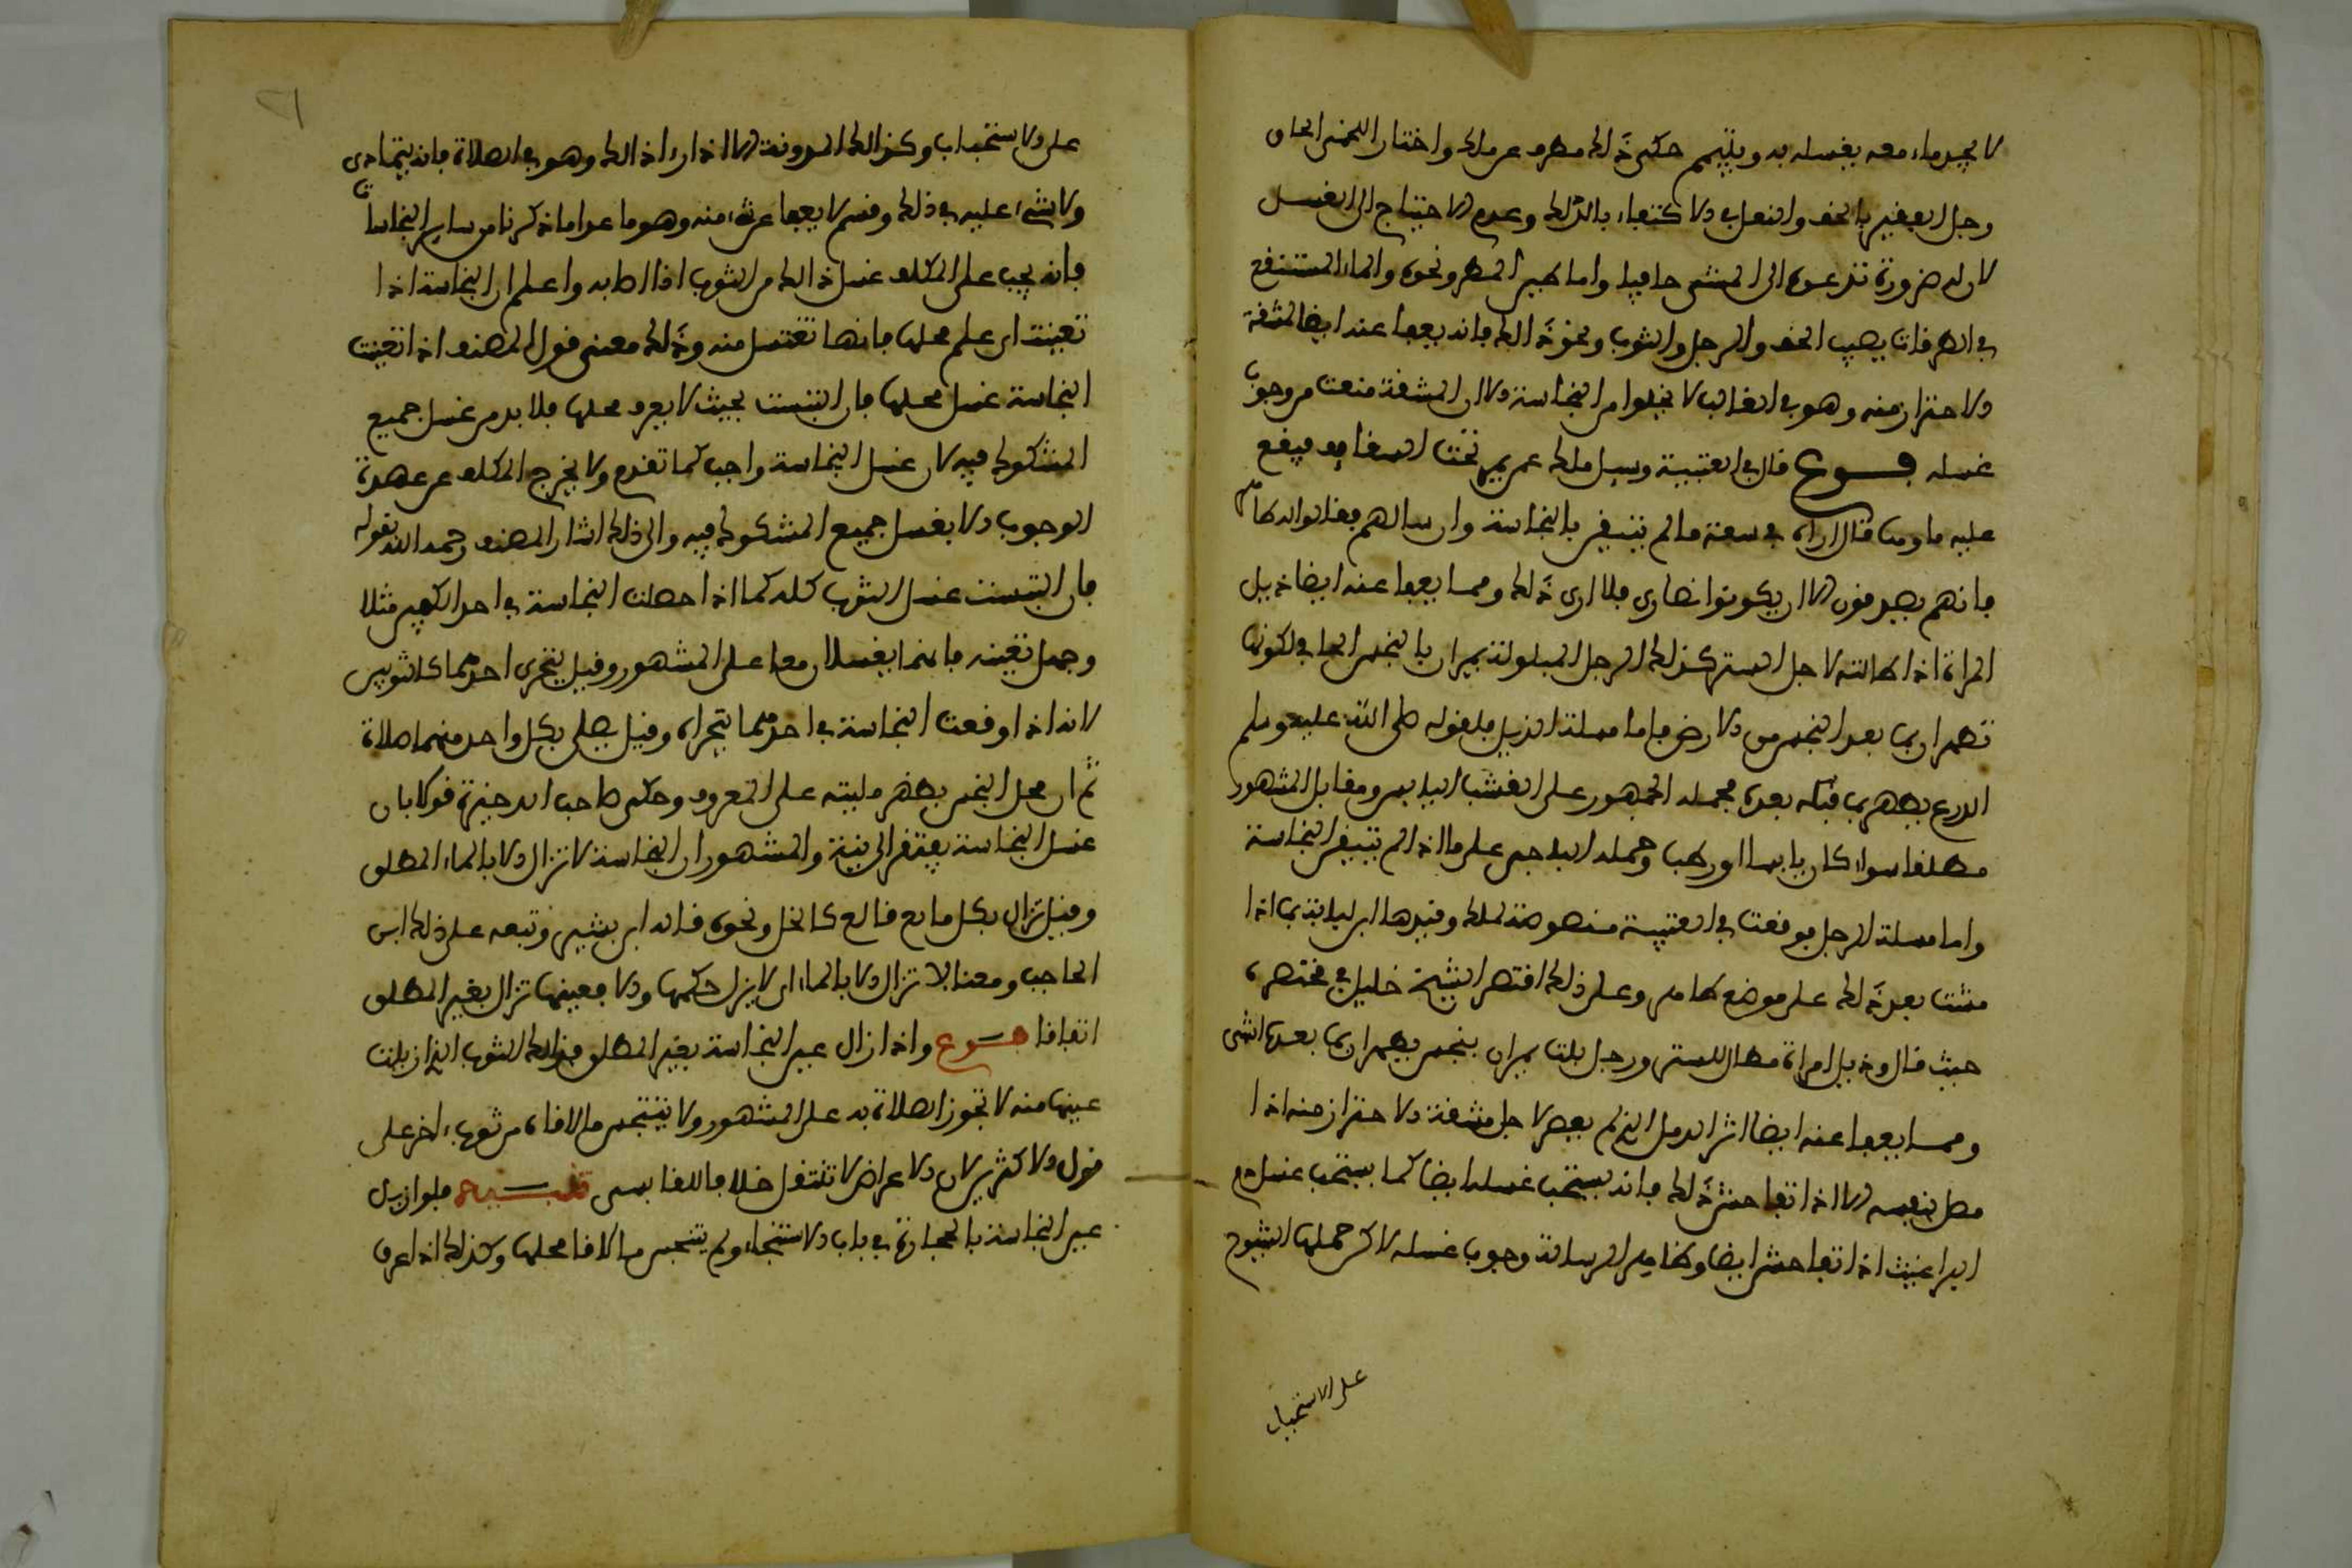 لا يجد ماء معه يغسله به ويتيمم حكى ذلك مطرف عن ملك واختار اللخمي الحاق
رجل الفقير بالخف والنعل في الاكتفاء بالدلك وعدم الاحتياج الى الغسل
لان له ضرورة تدعوه الى المشي حافيا واما طين المطر ونحوه والماء المستنقع
في الطرقات يصيب الخف والرجل والثوب ونحو ذلك فانه يعفا عنه ايضا لمشقة
الاحتراز منه وهو في الغالب لا يخلوا من النجاسة الا ان المشقة منعت من وجوب
غسله فرع قال في العتبية وسيل ملك عمن يمر تحت السقايف فيقع
عليه ماؤها قال اراه في سعة ما لم يتيقن بالنجاسة وان سالهم فقالوا له طاهر
فانهم يصدقون الا ان يكونوا نصارى فلا ارى ذلك ومما يعفا عنه ايضا ذيل
المراة اذا اطالته لاجل الستر كذلك الرجل المبلولة يمران بالنجس الجاف لكونها
تطهران بما بعد النجس من الارض فاما مسلة الذيل فلقوله صلى الله عليه وسلم
الدرع يطهره ما بعده فحمله الجمهور على القشب اليابس ومقابل المشهور
مطلقا سواء كان يابسا او رطب وحمله الباجي على ما اذا لم تتيقن النجاسة
واما مسلة الرجل فوقعت في العتبية منصوصة لملك وقيدها ابن اللباد بما اذا
مشت بعد ذلك على موضع طاهر وعلى ذلك اقتصر الشيخ خليل في مختصره
حيث قال وذيل امراة مطال للستر ورجل بلت يمران بنجس يطهران بما بعده انتهى
ومما يعفا عنه ايضا اثر الدمل الذي لم يعصر لاجل مشقة الاحتراز منه اذا
مصل بنفسه الا اذا تفاحش ذلك فانه يستحب غسله ايضا كما يستحب غسل دم
البراغيث اذا تفاحش ايضا وظاهر الرسالة وجوب غسله لاكن حملها الشيوخ
على الاستحباب
على الاستحباب وكذلك المدونة الا اذا راء ذلك وهو في الصلاة فانه يتمادى
ولا شيء عليه في ذلك وقسم لا يعفا عن شيء منه وهو ما عدا ما ذكرنا من ساير النجاسات
فانه يجب على المكلف غسل ذلك من الثوب اذا اصابه واعلم ان النجاسة اذا
تعينت اي علم محلها فانها تغتسل منه وذلك معنى قول المصنف اذا تعينت
النجاسة غسل محلها فان التبست بحيث لا يعرف محلها فلا بد من غسل جميع
المشكوك فيه لان غسل النجاسة واجب كما تقدم ولا يخرج المكلف عن عهدة
الوجوب الا بغسل جميع المشكوك فيه والى ذلك اشار المصنف رحمه الله بقوله
فان التبست غسل الثوب كله كما اذا حصلت النجاسة في احد الكمين مثلا
وجهل تعينه فانهما يغسلان معا على المشهور وقيل يتحرى احدهما كالثوبين
لانه اذا وقعت النجاسة في احدهما يتحراه وقيل يصلي بكل واحد منهما صلاة
ثم ان محل النجس يطهر بلا نية على المعروف وحكى صاحب الذخيرة قولا بان
غسل النجاسة يفتقر الى نية والمشهور ان النجاسة لا تزال الا بالماء المطلق
وقيل تزال بكل مايع قالع كالخل ونحوه قاله ابن بشير وتبعه على ذلك ابن
الحاجب ومعنا لا تزال الا بالماء اي لا يزل حكمها والا فعينها تزال بغير المطلق
اتفاقا فرع واذا زال عين النجاسة بغير المطلق فذلك الثوب الذي ازيلت
عينها منه لا تجوز الصلاة به على المشهور ولا يتنجس ما لاقاه من ثوب اخر على
قول الاكثرين لان الاعراض لا تنتقل خلافا للقابسي تنبيه فلو ازيل
عين النجاسة بالحجارة في باب الاستنجاء ولم يتنجس ما لاقا محلها وكذلك اذا عرق